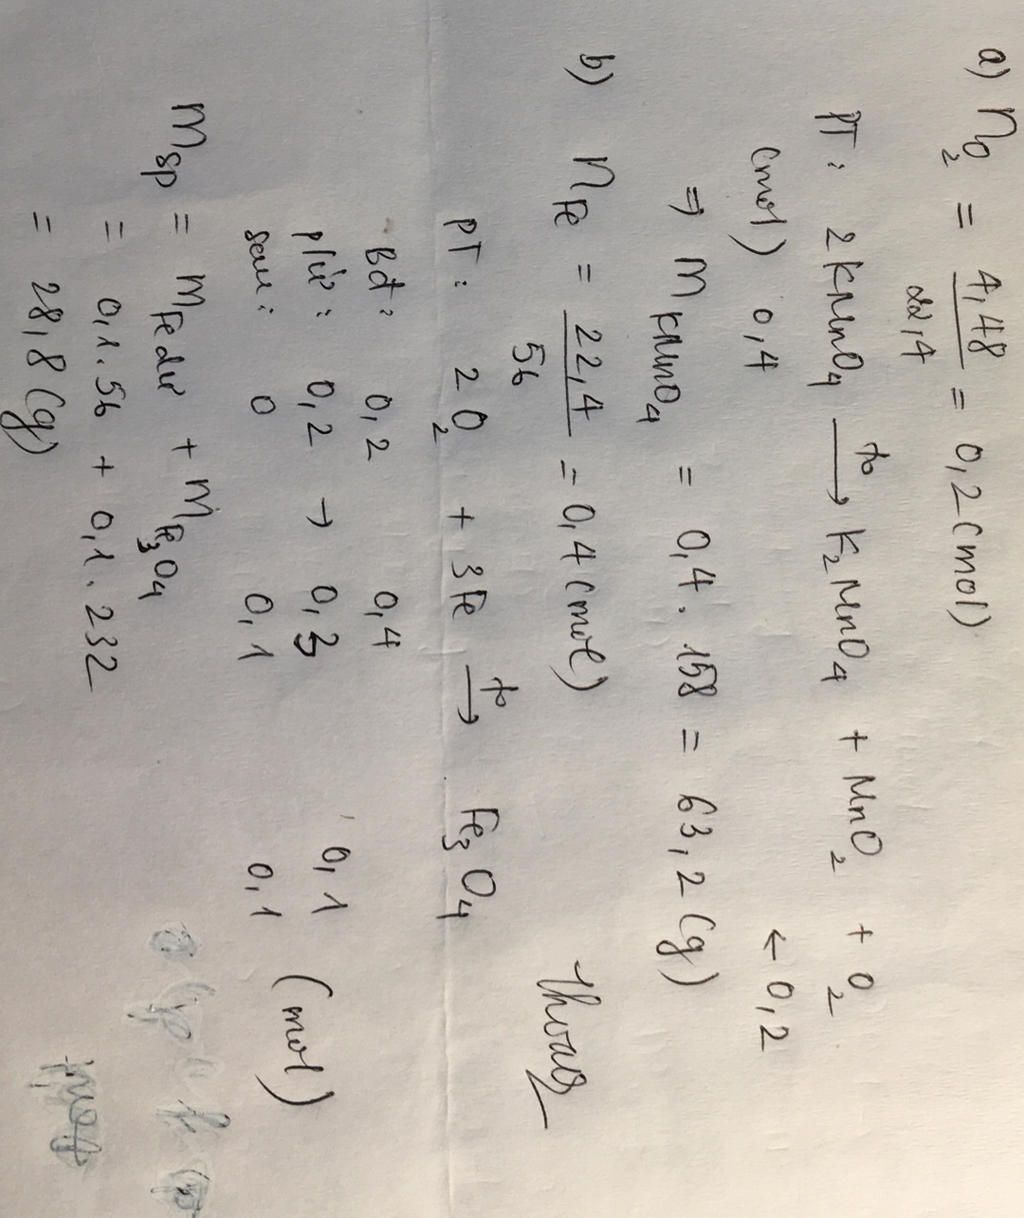 a) nO2 = 4,48 / 22,4 = 0,2 (mol)
PT: 2KMnO4 t° → K2MnO4 + MnO2 + O2
(mol) 0,4 ← 0,2
⇒ mKMnO4 = 0,4 . 158 = 63,2 (g)
b) nFe = 22,4 / 56 = 0,4 (mol)
PT: 2O2 + 3Fe t° → Fe3O4
Bđ: 0,2 0,4
p/ứ: 0,2 → 0,3 0,1
sau: 0 0,1 0,1 (mol)
msp = mFe dư + mFe3O4
= 0,1.56 + 0,1.232
= 28,8 (g)